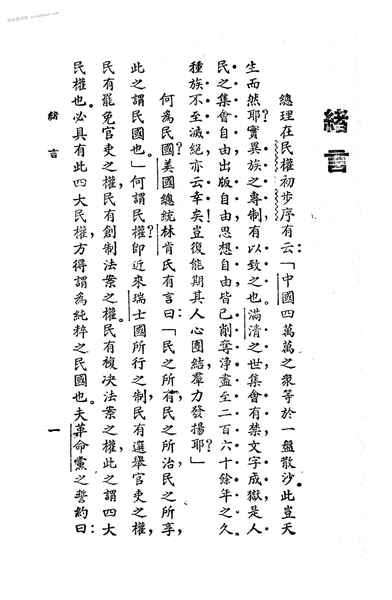 緒言
總理在民權初步序有云：「中國四萬萬之眾等於一盤散沙此豈天
生而然耶？實異族之專制有以致之也。滿清之世集會有禁文字成獄是人
民之集會自由出版自由思想自由皆已削奪淨盡至二百六十餘年之久。
種族不至滅絕亦云幸矣！豈復能期其人心團結，羣力發揚耶？」
何為民國？美國總統林肯氏有言曰：「民之所有，民之所治，民之所享，
此之謂民國也。」何謂民權？即近來瑞士國所行之制，民有選舉官吏之權，
民有罷免官吏之權，民有創制法案之權。民有複決法案之權，此之謂四大
民權也。必具有此四大民權，方得謂為純粹之民國也。夫革命黨之誓約曰：
緒言 一